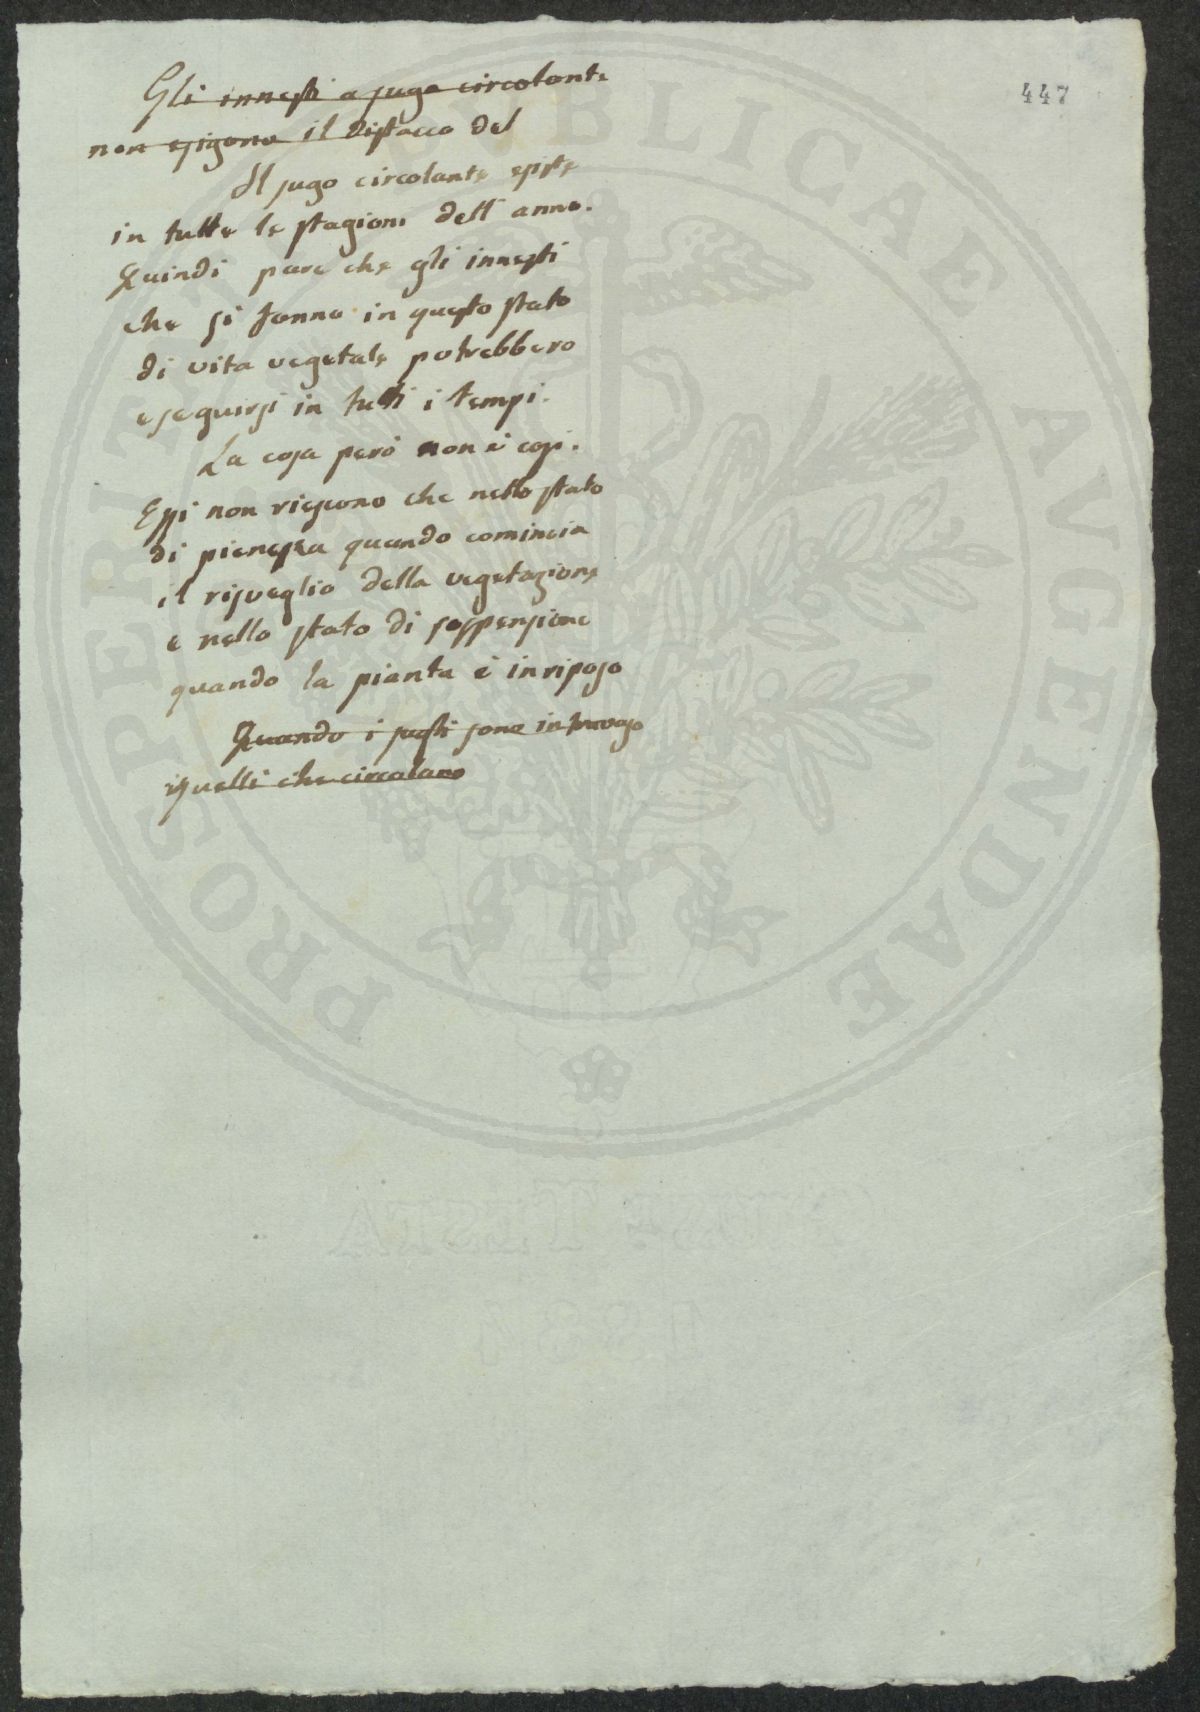 447
Gli innesti a sugo circolante
non esigono il distacco del
Il sugo circolante esiste
in tutte le stagioni dell'anno.
Quindi pare che gli innesti
che si fanno in questo stato
di vita vegetale potrebbero
eseguirsi in tutti i tempi.
La cosa però non è così.
Essi non riescono che nello stato
di pienezza quando comincia
il risveglio della vegetazione
e nello stato di sospensione
quando la pianta è in riposo
Quando i sughi sono in
quelli che circolano
PROSPERITATI PVBLICAE AVGENDAE